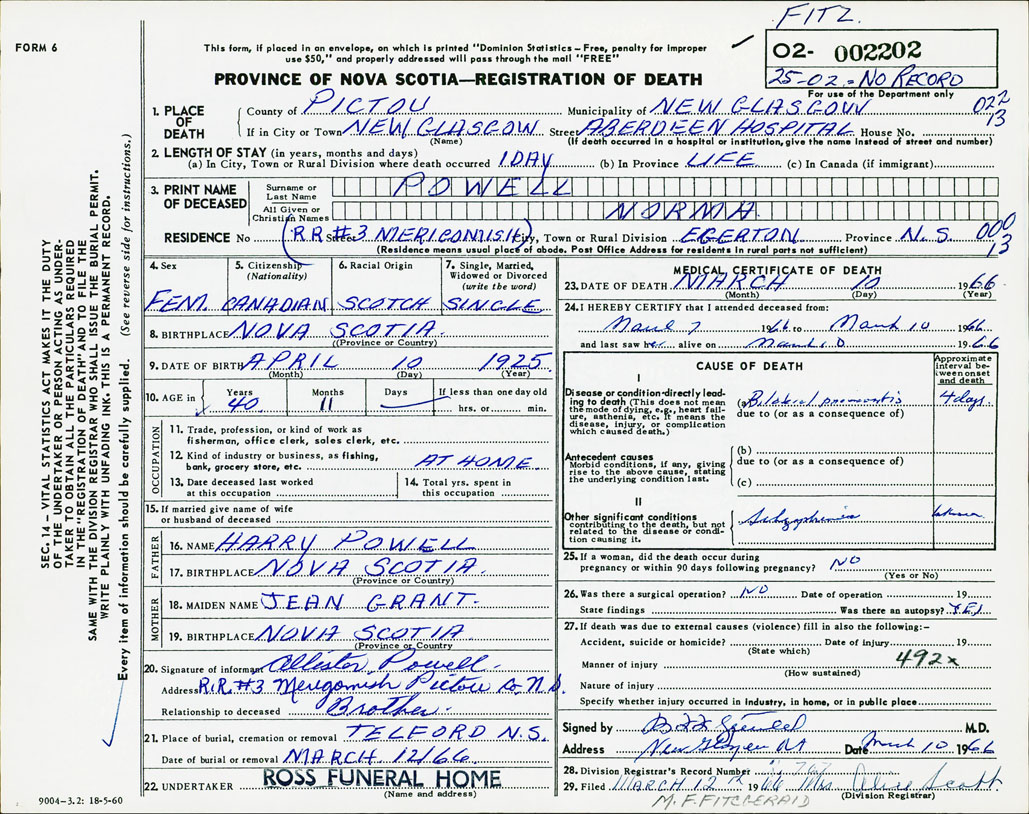 FITZ.
FORM 6
This form, if placed in an envelope, on which is printed "Dominion Statistics – Free, penalty for improper
use $50," and properly addressed will pass through the mail "FREE"
02- 002202
25-02 = NO RECORD
For use of the Department only
PROVINCE OF NOVA SCOTIA—REGISTRATION OF DEATH
1. PLACE OF DEATH
County of PICTOU Municipality of NEW GLASGOW 022
If in City or Town NEW GLASGOW Street ABERDEEN HOSPITAL House No. 13
(Name) (If death occurred in a hospital or institution, give the name instead of street and number)
2. LENGTH OF STAY (in years, months and days)
(a) In City, Town or Rural Division where death occurred 1 DAY (b) In Province LIFE (c) In Canada (if immigrant)
3. PRINT NAME OF DECEASED
Surname or Last Name POWELL
All Given or Christian Names NORMA
RESIDENCE No (R.R. Street #3 MERIGOMISH) City, Town or Rural Division EGERTON Province N.S. 000
(Residence means usual place of abode. Post Office Address for residents in rural parts not sufficient) 13
4. Sex 5. Citizenship (Nationality) 6. Racial Origin 7. Single, Married, Widowed or Divorced (write the word)
FEM. CANADIAN SCOTCH SINGLE
8. BIRTHPLACE NOVA SCOTIA.
(Province or Country)
9. DATE OF BIRTH APRIL 10 1925
(Month) (Day) (Year)
10. AGE in Years Months Days If less than one day old
40 11 hrs. or min.
OCCUPATION
11. Trade, profession, or kind of work as
fisherman, office clerk, sales clerk, etc.
12. Kind of industry or business, as fishing,
bank, grocery store, etc. AT HOME
13. Date deceased last worked
at this occupation
14. Total yrs. spent in
this occupation
15. If married give name of wife
or husband of deceased
FATHER
16. NAME HARRY POWELL
17. BIRTHPLACE NOVA SCOTIA.
(Province or Country)
MOTHER
18. MAIDEN NAME JEAN GRANT.
19. BIRTHPLACE NOVA SCOTIA
(Province or Country)
20. Signature of informant Allister Powell.
Address R.R. #3 Merigomish Pictou Co N.S.
Relationship to deceased Brother.
21. Place of burial, cremation or removal TELFORD N.S.
Date of burial or removal MARCH 12/66
22. UNDERTAKER ROSS FUNERAL HOME
(Name and address)
MEDICAL CERTIFICATE OF DEATH
23. DATE OF DEATH MARCH 10 1966
(Month) (Day) (Year)
24. I HEREBY CERTIFY that I attended deceased from:
March 7 1966 to March 10 1966
and last saw her alive on March 10 1966
CAUSE OF DEATH
Approximate interval between onset and death
I
Disease or condition directly leading to death (This does not mean the mode of dying, e.g., heart failure, asthenia, etc. It means the disease, injury, or complication which caused death.)
(a) Bilateral pneumonitis 4 days.
due to (or as a consequence of)
Antecedent causes
Morbid conditions, if any, giving rise to the above cause, stating the underlying condition last.
(b)
due to (or as a consequence of)
(c)
II
Other significant conditions
contributing to the death, but not related to the disease or condition causing it.
Schizophrenia
25. If a woman, did the death occur during
pregnancy or within 90 days following pregnancy? NO
(Yes or No)
26. Was there a surgical operation? NO Date of operation 19
State findings Was there an autopsy? YES
27. If death was due to external causes (violence) fill in also the following:–
Accident, suicide or homicide? Date of injury 19
(State which)
Manner of injury 492x
(How sustained)
Nature of injury
Specify whether injury occurred in industry, in home, or in public place
Signed by M.D.
Address New Glasgow NS Date March 10 1966
28. Division Registrar's Record Number
29. Filed MARCH 12th 1966 Mrs Alice Scott
(Division Registrar)
M. F. FITZGERALD
SEC. 14 – VITAL STATISTICS ACT MAKES IT THE DUTY
OF THE UNDERTAKER OR PERSON ACTING AS UNDERTAKER
TO OBTAIN ALL THE PARTICULARS REQUIRED
IN THE "REGISTRATION OF DEATH" AND TO FILE THE
SAME WITH THE DIVISION REGISTRAR WHO SHALL ISSUE THE BURIAL PERMIT.
WRITE PLAINLY WITH UNFADING INK. THIS IS A PERMANENT RECORD.
Every item of information should be carefully supplied. (See reverse side for instructions.)
9004–3.2: 18-5-60